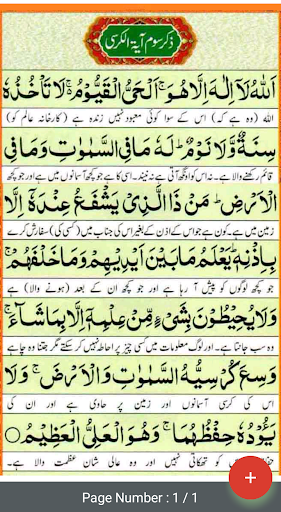 ذکر سوم آیة الکرسی
اَللّٰهُ لَاۤ اِلٰهَ اِلَّا هُوَ ۚ اَلْحَیُّ الْقَیُّوْمُ ۚ۬ لَا تَاْخُذُهٗ
اللہ (وہ ہے کہ) اس کے سوا کوئی معبود نہیں زندہ ہے (کارخانہ عالم کو)
سِنَةٌ وَّلَا نَوْمٌ ؕ لَهٗ مَا فِی السَّمٰوٰتِ وَمَا فِی
قائم رکھنے والا ہے۔ نہ اس کو اونگھ آتی ہے نہ نیند۔ اسی کا ہے جو کچھ آسمانوں میں ہے اور جو کچھ
الْاَرْضِ ؕ مَنْ ذَا الَّذِیْ یَشْفَعُ عِنْدَهٗۤ اِلَّا
زمین میں ہے۔ کون ہے جو اس کے اذن کے بغیر اس کی جناب میں (کسی کی) سفارش کرے
بِاِذْنِهٖ ؕ یَعْلَمُ مَا بَیْنَ اَیْدِیْهِمْ وَمَا خَلْفَهُمْ ۚ
جو کچھ لوگوں کو پیش آ رہا ہے اور جو کچھ ان کے بعد (ہونے والا) ہے
وَلَا یُحِیْطُوْنَ بِشَیْءٍ مِّنْ عِلْمِهٖۤ اِلَّا بِمَا شَآءَ ۚ
وہ سب جانتا ہے۔ اور لوگ معلومات میں سے کسی چیز پر احاطہ نہیں کر سکتے مگر جتنا وہ چاہے
وَسِعَ كُرْسِیُّهُ السَّمٰوٰتِ وَالْاَرْضَ ۚ وَلَا
اس کی کرسی آسمانوں اور زمین پر حاوی ہے اور ان کی
یَـُٔوْدُهٗ حِفْظُهُمَا ۚ وَهُوَ الْعَلِیُّ الْعَظِیْمُ ○
کو تھکاتی نہیں اور وہ عالی شان عظمت والا ہے۔
+
Page Number : 1 / 1